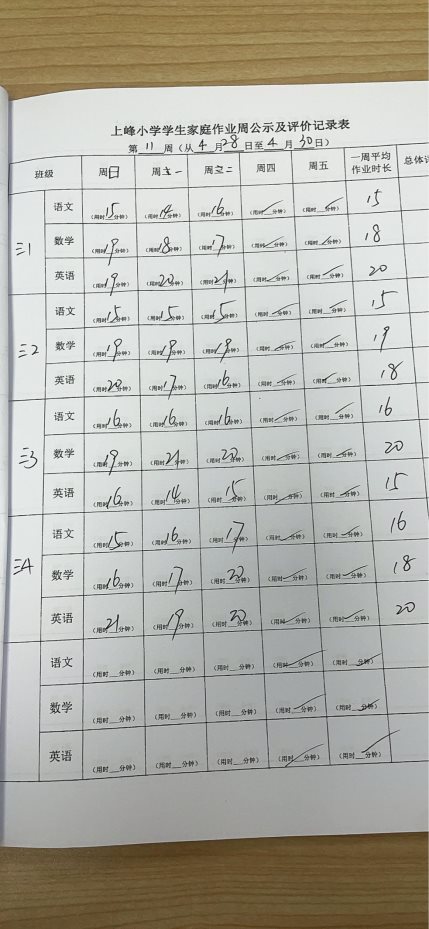 上峰小学学生家庭作业周公示及评价记录表
第 11 周（从 4 月 28 日至 4 月 30 日）
班级 周日 周一 周二 周四 周五 一周平均作业时长 总体
三1 语文 （用时15分钟） （用时14分钟） （用时16分钟） （用时／分钟） （用时／分钟） 15
数学 （用时19分钟） （用时18分钟） （用时17分钟） （用时／分钟） （用时／分钟） 18
英语 （用时19分钟） （用时20分钟） （用时21分钟） （用时／分钟） （用时／分钟） 20
三2 语文 （用时15分钟） （用时15分钟） （用时15分钟） （用时／分钟） （用时／分钟） 15
数学 （用时19分钟） （用时19分钟） （用时19分钟） （用时／分钟） （用时／分钟） 19
英语 （用时20分钟） （用时17分钟） （用时16分钟） （用时／分钟） （用时／分钟） 18
三3 语文 （用时16分钟） （用时16分钟） （用时16分钟） （用时／分钟） （用时／分钟） 16
数学 （用时19分钟） （用时21分钟） （用时20分钟） （用时／分钟） （用时／分钟） 20
英语 （用时16分钟） （用时14分钟） （用时15分钟） （用时／分钟） （用时／分钟） 15
三4 语文 （用时15分钟） （用时16分钟） （用时17分钟） （用时／分钟） （用时／分钟） 16
数学 （用时16分钟） （用时17分钟） （用时20分钟） （用时／分钟） （用时／分钟） 18
英语 （用时21分钟） （用时19分钟） （用时20分钟） （用时／分钟） （用时／分钟） 20
语文 （用时__分钟） （用时__分钟） （用时__分钟） （用时／分钟） （用时／分钟）
数学 （用时__分钟） （用时__分钟） （用时__分钟） （用时／分钟） （用时／分钟）
英语 （用时__分钟） （用时__分钟） （用时__分钟） （用时／分钟） （用时／分钟）